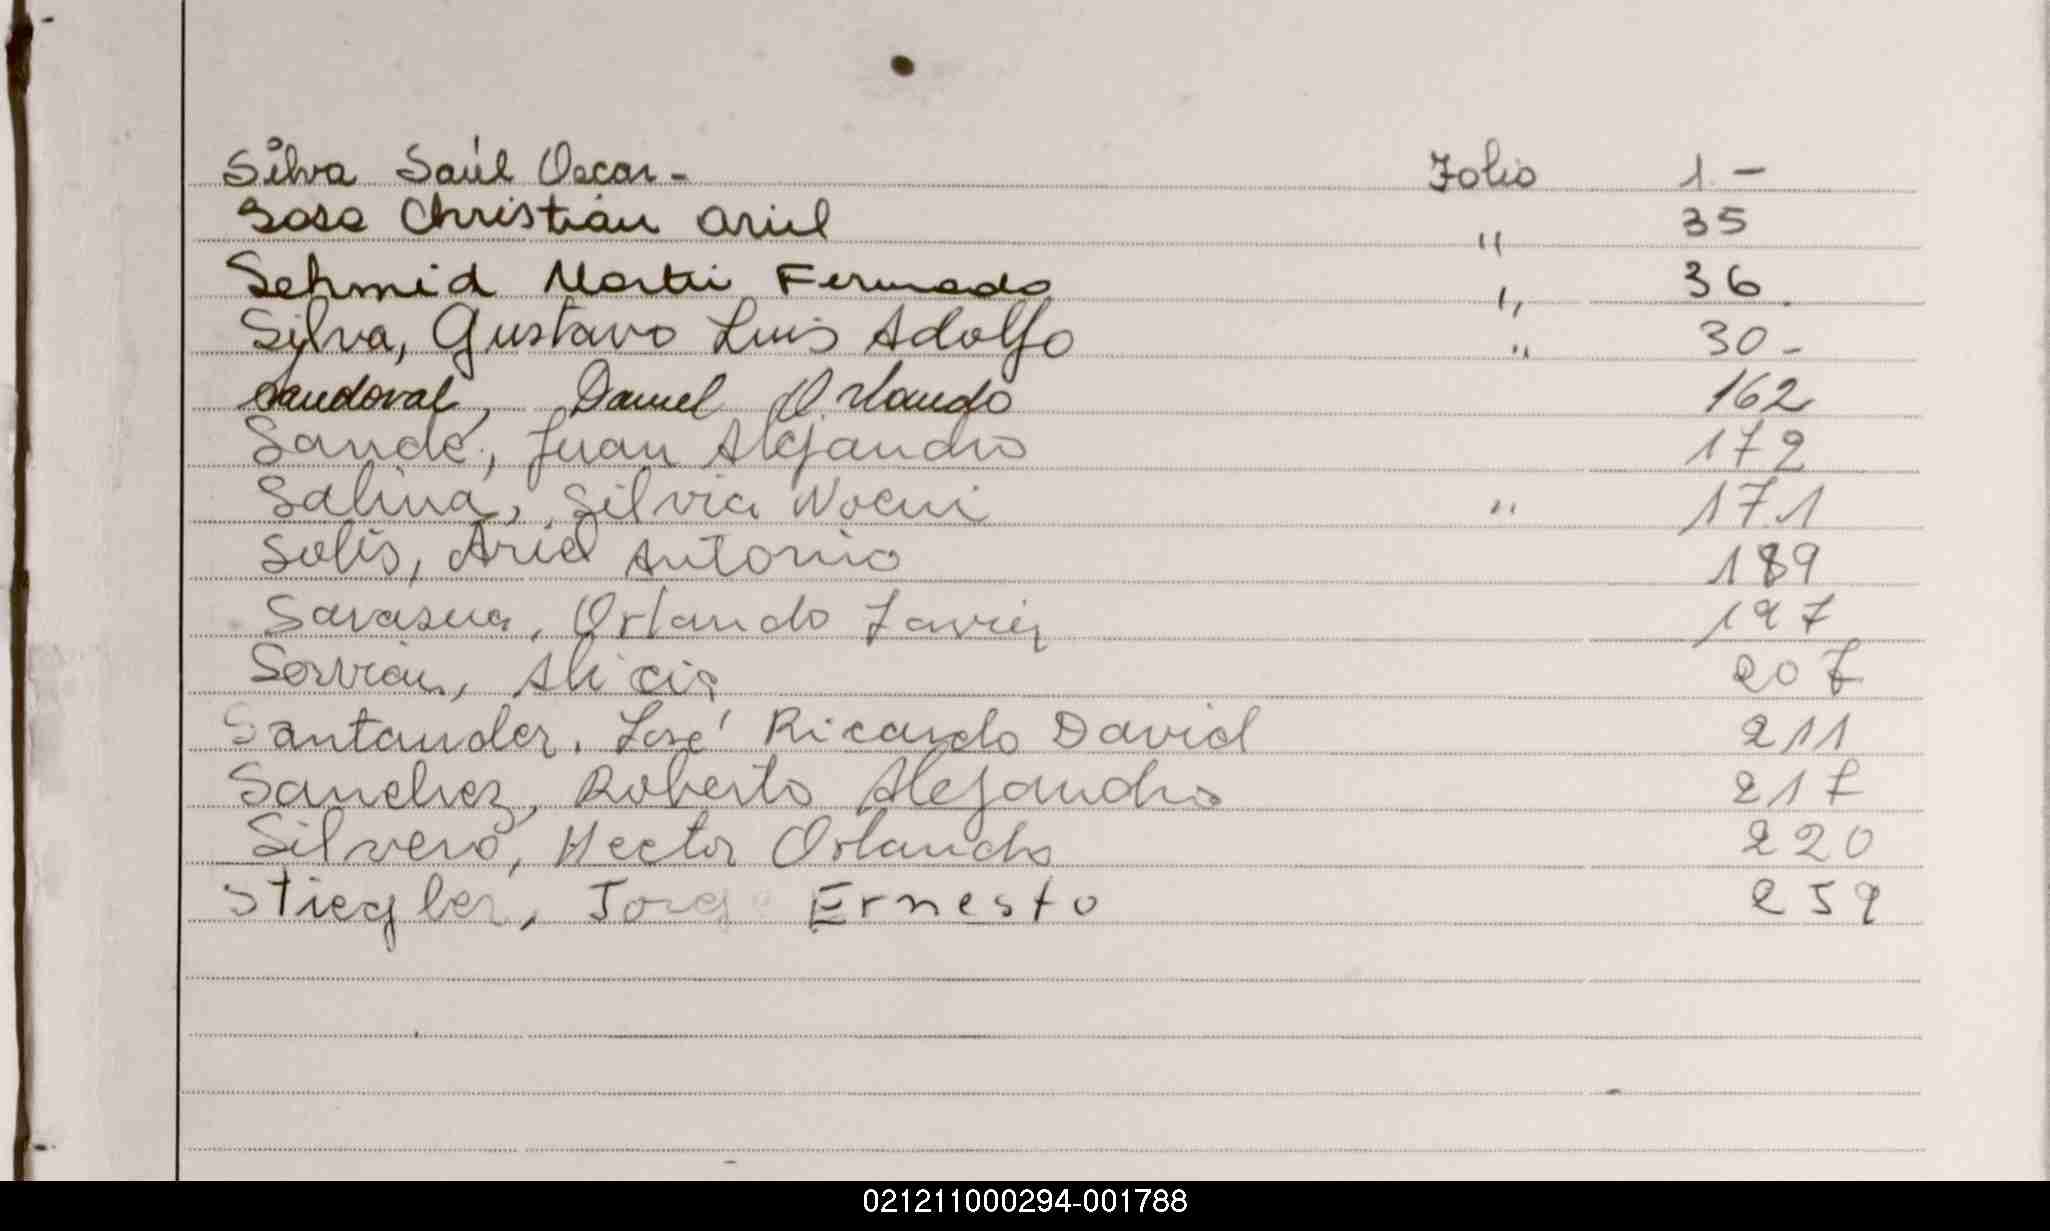 Silva Saúl Oscar - Folio 1. -
Sosa Christian Ariel " 35
Schmid Martin Fernando " 36.
Sylva, Gustavo Luis Adolfo " 30 -
Sandoval, Daniel Orlando 162
Sande, Juan Alejandro 172
Salina, Silvia Noemi " 171
Solis, Ariel Antonio 189
Sarasua, Orlando Javier 197
Servian, Alicia 207
Santander, José Ricardo David 211
Sanchez, Roberto Alejandro 217
Silvero, Hector Orlando 220
Stiegler, Jorge Ernesto 259
021211000294-001788